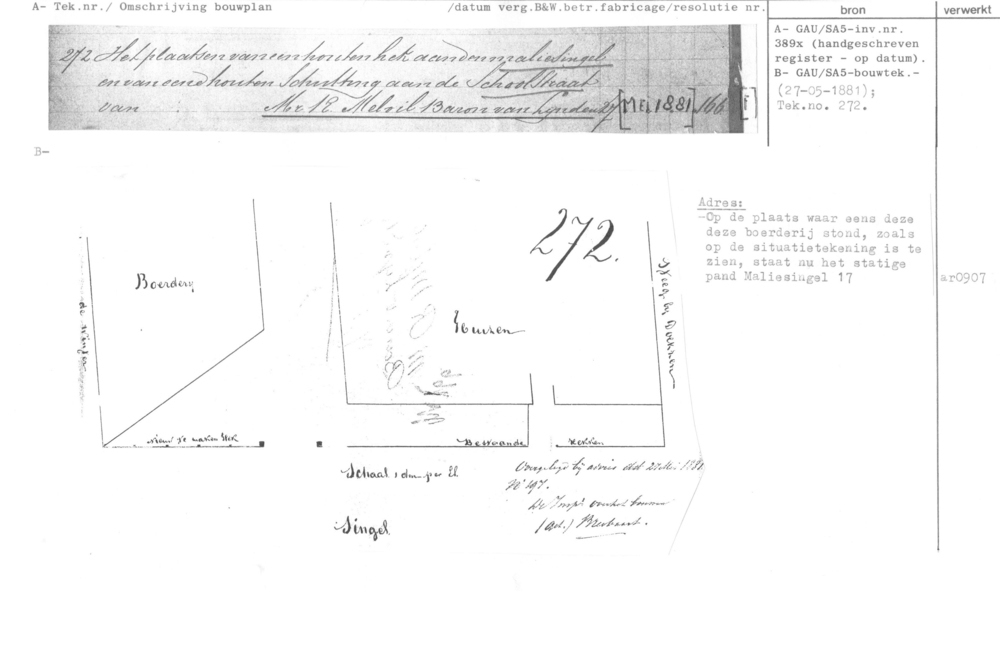 A- Tek.nr./ Omschrijving bouwplan /datum verg.B&W.betr.fabricage/resolutie nr.
bron
verwerkt
272 Het plaatsen van een houten hek aan den maliesingel
en van eene houten Schutting aan de Schoolstraat
van Mr. R. Melvil Baron van Lynden 27 [MEI 1881] 166 [F]
A- GAU/SA5-inv.nr.
389x (handgeschreven
register - op datum).
B- GAU/SA5-bouwtek.-
(27-05-1881);
Tek.no. 272.
B-
272.
Boerdery
Huizen
Steeg by
Adres:
-Op de plaats waar eens deze
deze boerderij stond, zoals
op de situatietekening is te
zien, staat nu het statige
pand Maliesingel 17
ar0907
nieuw te maken Hek
Bestaande Hekken
Schaal 1 dm. per El
Singel
Overgelegd bij advies dd 22 Mei 1881
No 197.
De Insp.
(get.)